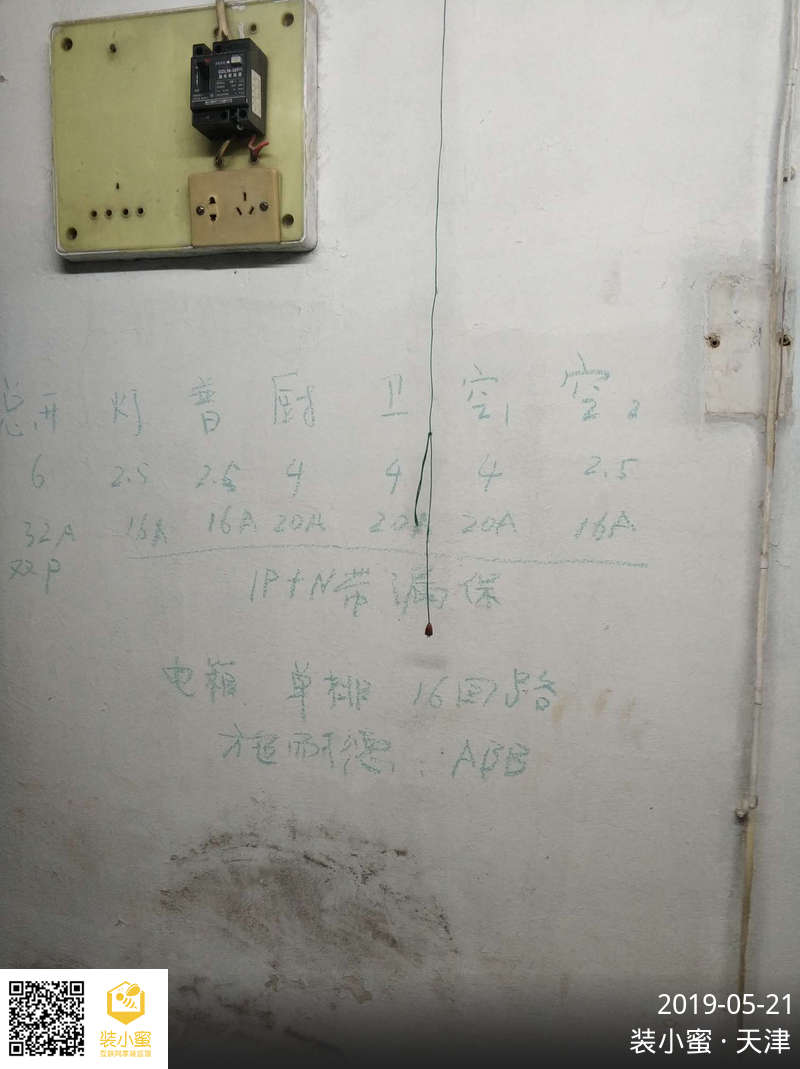 总开 灯 普 厨 卫 空1 空2
6 2.5 2.5 4 4 4 2.5
32A 16A 16A 20A 20A 20A 16A
双P
1P+N带漏保
电箱 单排 16回路
施耐德 : ABB
2019-05-21
装小蜜·天津
装小蜜